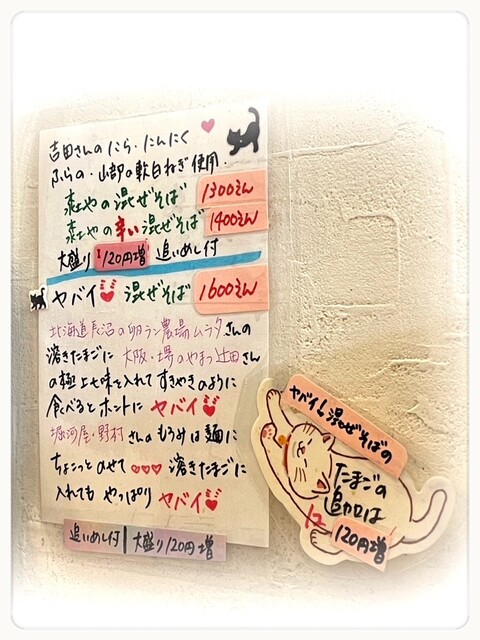 吉田さんのにら・にんにく
ふらの・山部の軟白ねぎ使用.
の混ぜそば 1300えん
の辛い混ぜそば 1400えん
大盛り 120円増 追いめし付
ヤバイ 混ぜそば 1600えん
北海道長沼の卵ラン農場ムラタさんの
溶きたまごに 大阪・堺のやまつ辻田さん
の極上七味を入れて すきやきのように
食べるとホントに ヤバイ
堀河屋・野村さんのもろみは麺に
ちょこっとのせて ♥♥♥ 溶きたまごに
入れても やっぱり ヤバイ
追いめし付 大盛り120円増
ヤバイ 混ぜそばの
たまごの
追加は
120円増